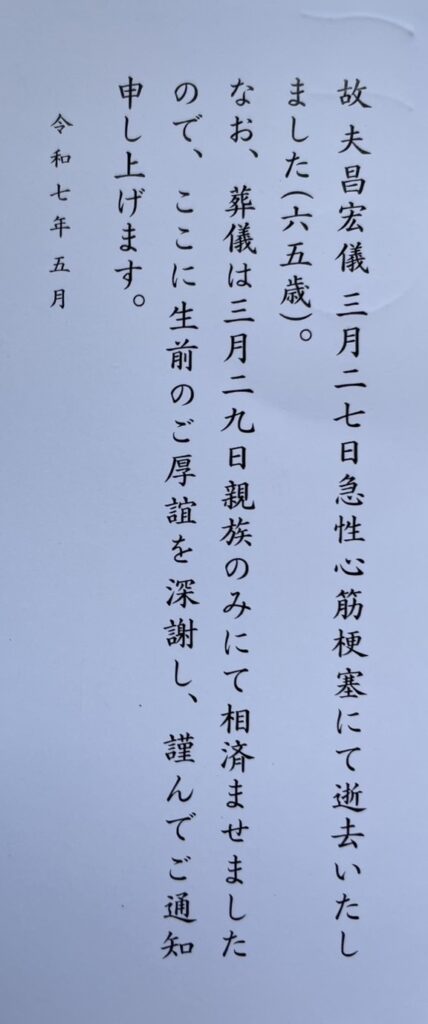 故 夫昌宏儀 三月二七日急性心筋梗塞にて逝去いたし
ました(六五歳)。
なお、葬儀は三月二九日親族のみにて相済ませました
ので、ここに生前のご厚誼を深謝し、謹んでご通知
申し上げます。
令和七年五月